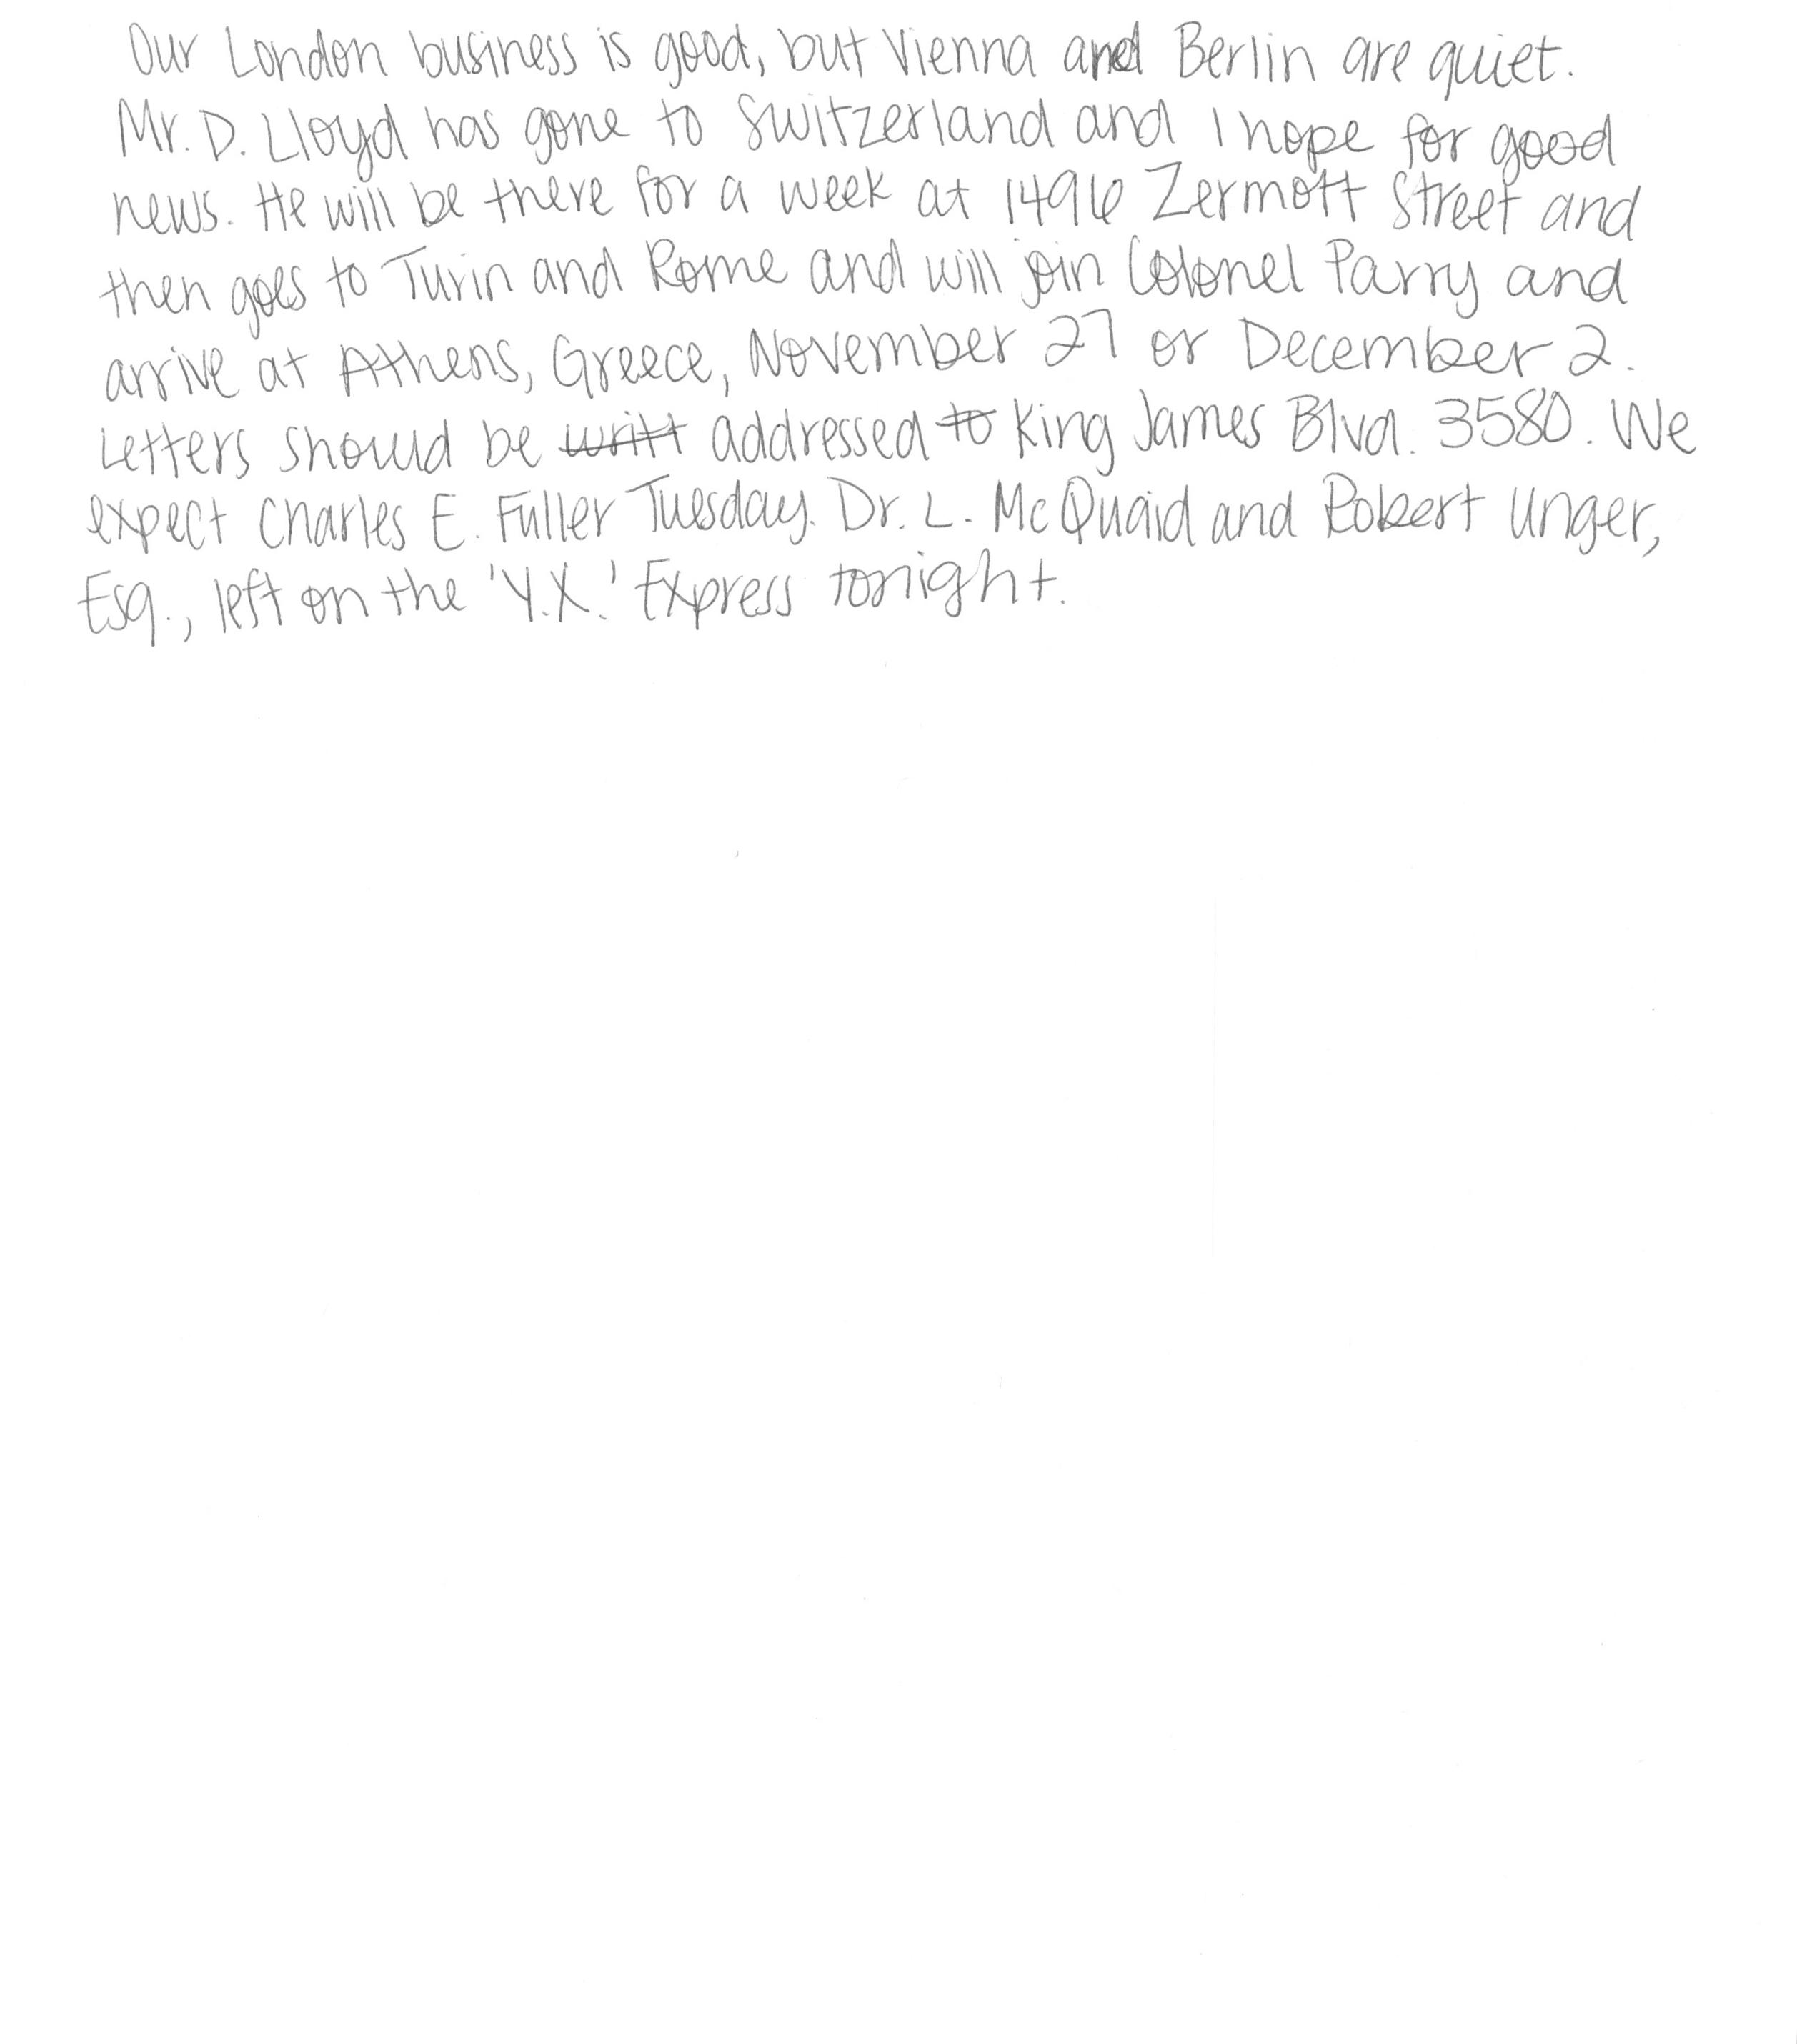 Our London business is good, but Vienna and Berlin are quiet.
Mr. D. Lloyd has gone to Switzerland and I hope for good
news. He will be there for a week at 1496 Zermott Street and
then goes to Turin and Rome and will join Colonel Parry and
arrive at Athens, Greece, November 27 or December 2.
Letters should be writt addressed to King James Blvd. 3580. We
expect Charles E. Fuller Tuesday. Dr. L. McQuaid and Robert Unger,
Esq., left on the 'Y.X.' Express tonight.